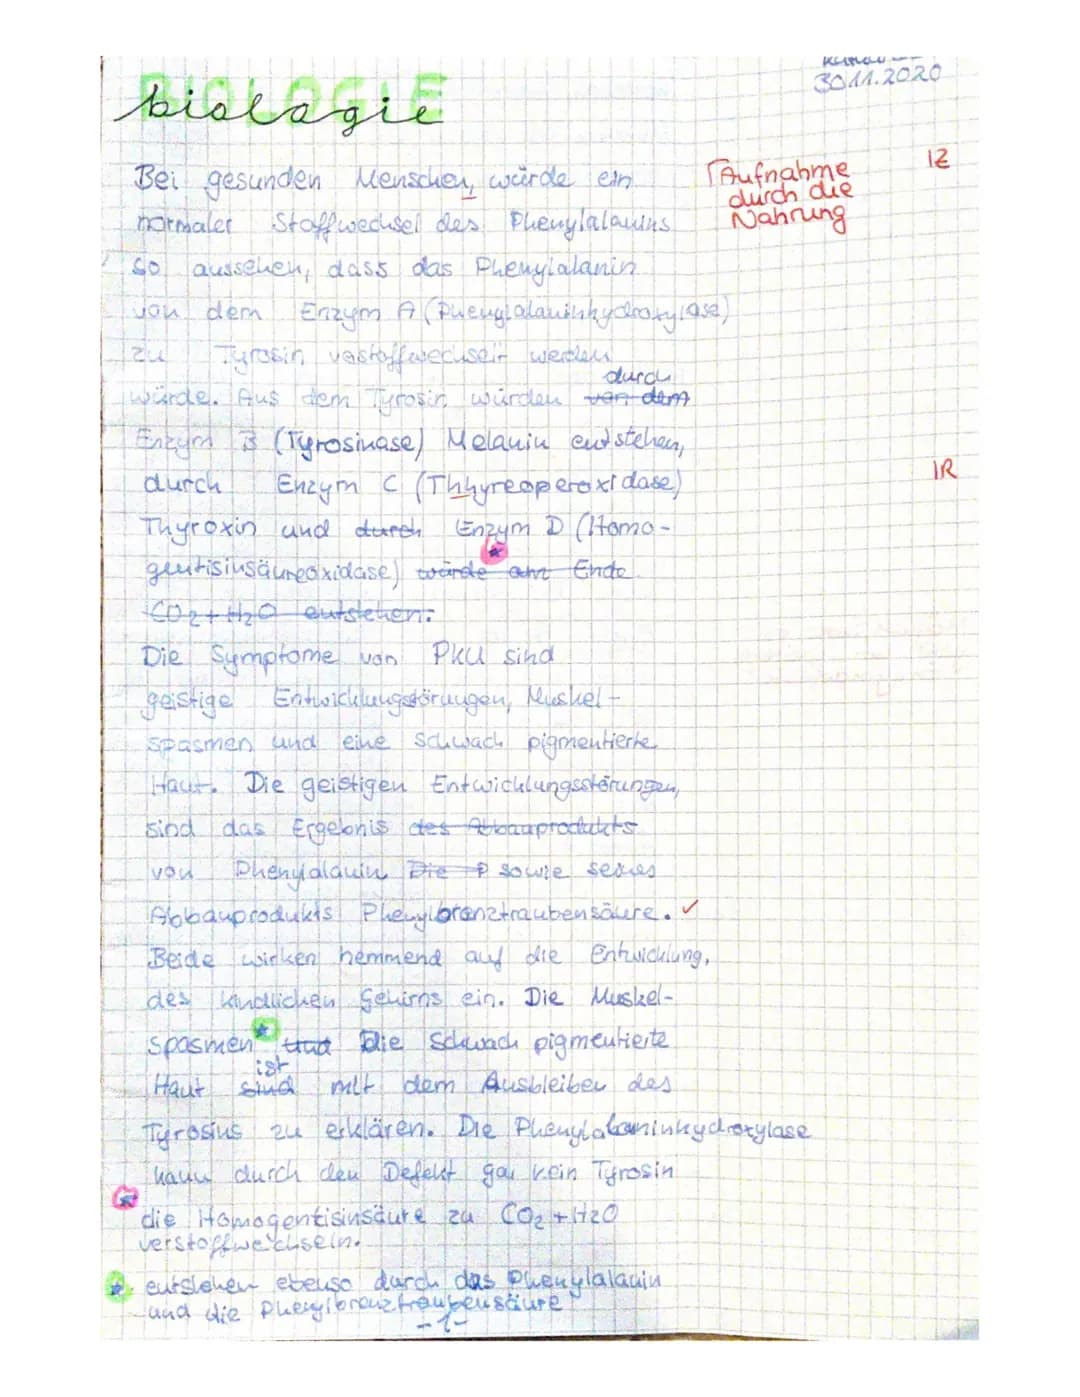 BIOLOGIE
biologie
30.11.2020
Bei gesunden Menschen, würde ein
normaler Stoffwechsel des Phenylalanins
so aussehen, dass das Phenylalanin
von dem Enzym A (Phenylalaninhydroxylase)
zu Tyrosin verstoffwechselt werden
würde. Aus dem Tyrosin würden von dem durch
Enzym B (Tyrosinase) Melanin entstehen,
durch Enzym C (Thhyreoperoxidase)
Thyroxin und durch Enzym D (Homo-
gentisinsäureoxidase) würde am Ende
CO2+H2O entstehen.
Die Symptome von PKU sind
geistige Entwicklungsstörungen, Muskel-
spasmen und eine schwach pigmentierte
Haut. Die geistigen Entwicklungsstörungen,
sind das Ergebnis des Abbauprodukts
von Phenylalanin Die P sowie seines
Abbauprodukts Phenylbranztraubensäure. ✓
Beide wirken hemmend auf die Entwicklung,
des kindlichen Gehirns ein. Die Muskel-
spasmen und Die schwach pigmentierte
Haut sind ist mit dem Ausbleiben des
Tyrosins zu erklären. Die Phenylalaninhydroxylase
kann durch den Defekt gar kein Tyrosin
die Homogentisinsäure zu CO2+H2O
verstoffwechseln.
entstehen ebenso durch das Phenylalanin
und die Phenylbrenztraubensäure
-1-
Aufnahme
durch die
Nahrung
1Z
1R